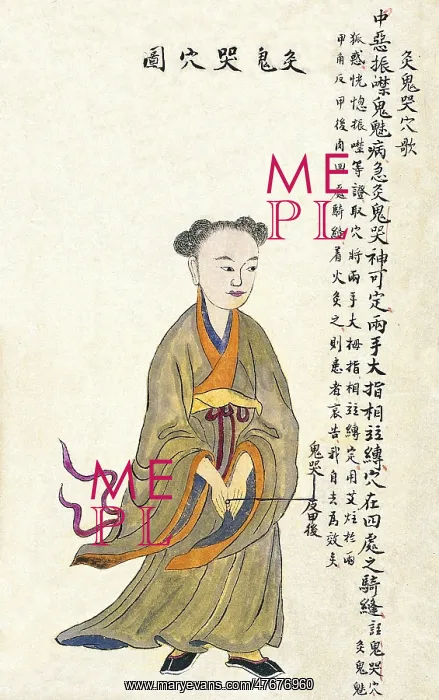 灸鬼哭穴圖
灸鬼哭穴歌
中惡振噤鬼魅病急灸鬼哭神可定兩手大指相並縛穴在四處之騎縫註鬼哭穴灸鬼魅
狐惑恍惚振噤等證取穴將兩手大拇指相並縛定用艾炷於兩
甲角反甲後肉四處騎縫着火灸之則患者哀告我自去為效矣
鬼哭
反甲後
ME
PL
ME
PL
www.maryevans.com/47676960